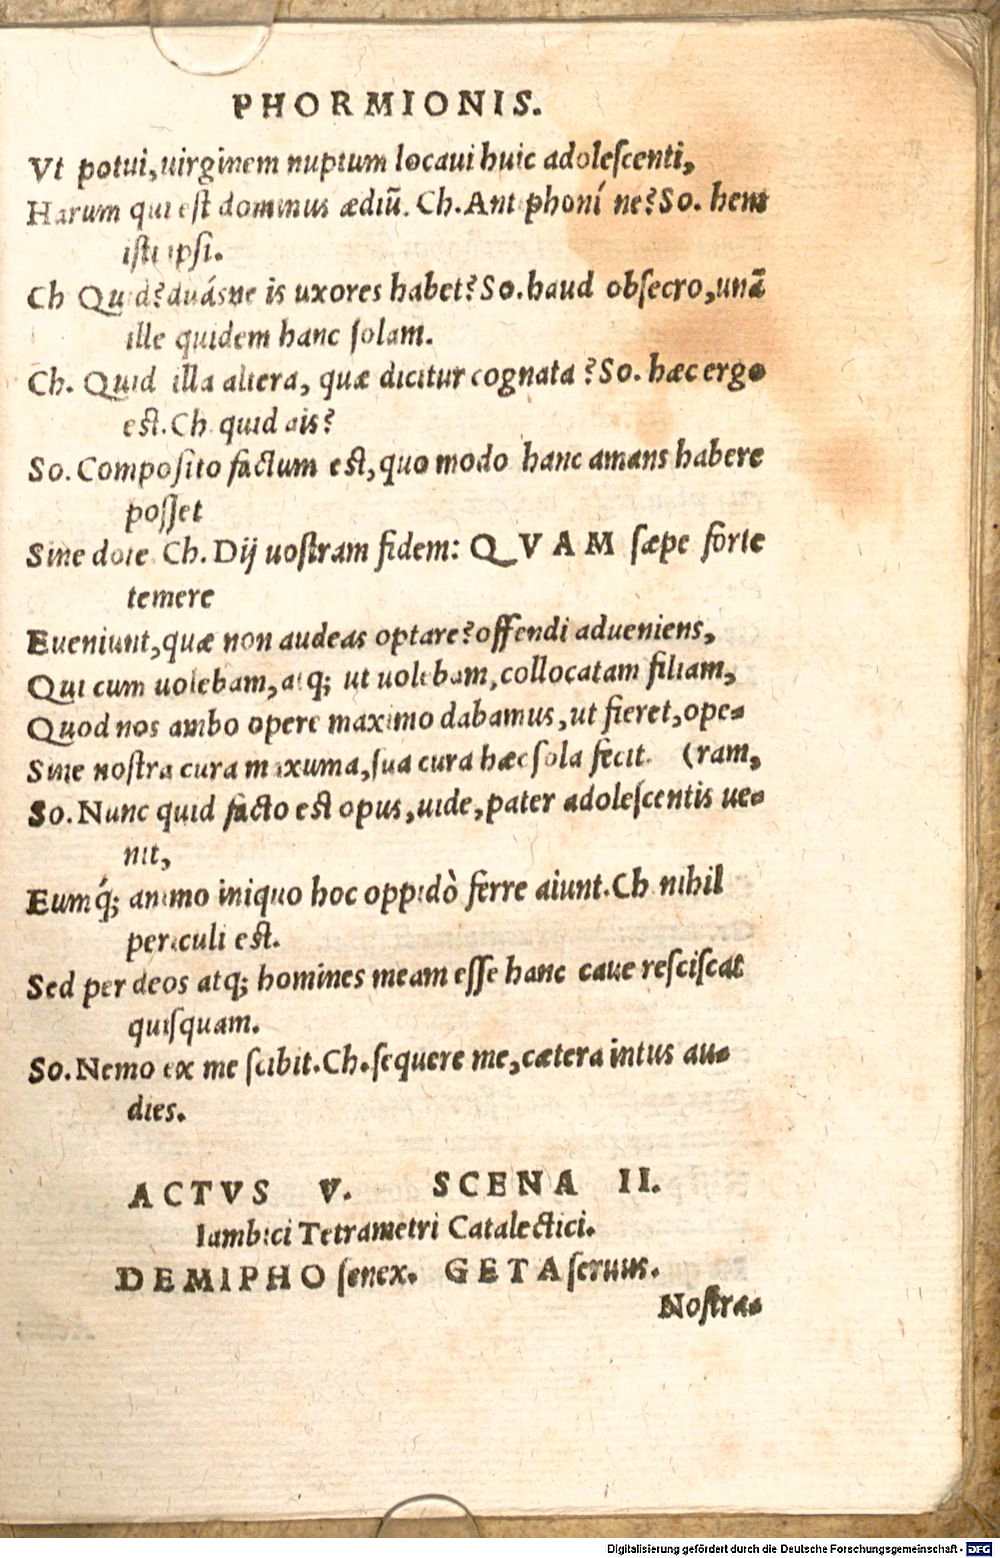 PHORMIONIS.
Vt potui, uirginem nuptum locaui huic adolescenti,
Harum qui est dominus ædiũ. Ch. Antiphoní ne? So. hem
isti ipsi.
Ch Quid? duásne is uxores habet? So. haud obsecro, unã
ille quidem hanc solam.
Ch. Quid illa altera, quæ dicitur cognata? So. hæc ergo
est. Ch quid ais?
So. Composito factum est, quo modo hanc amans habere
posset
Sine dote Ch. Dij uostram fidem: QVAM sæpe forte
temere
Eueniunt, quæ non audeas optare? offendi adueniens,
Qui cum uolebam, atq; ut uolebam, collocatam filiam,
Quod nos ambo opere maximo dabamus, ut fieret, ope-
Sine nostra cura maxuma, sua cura hæc sola fecit. (ram,
So. Nunc quid facto est opus, uide, pater adolescentis ue-
nit,
Eumq́; animo iniquo hoc oppidò ferre aiunt. Ch nihil
periculi est.
Sed per deos atq; homines meam esse hanc caue resciscat
quisquam.
So. Nemo ex me scibit. Ch. sequere me, cætera intus au-
dies.
ACTVS V. SCENA II.
Iambici Tetrametri Catalectici.
DEMIPHO senex. GETA seruus.
Nostra-
Digitalisierung gefördert durch die Deutsche Forschungsgemeinschaft - DFG